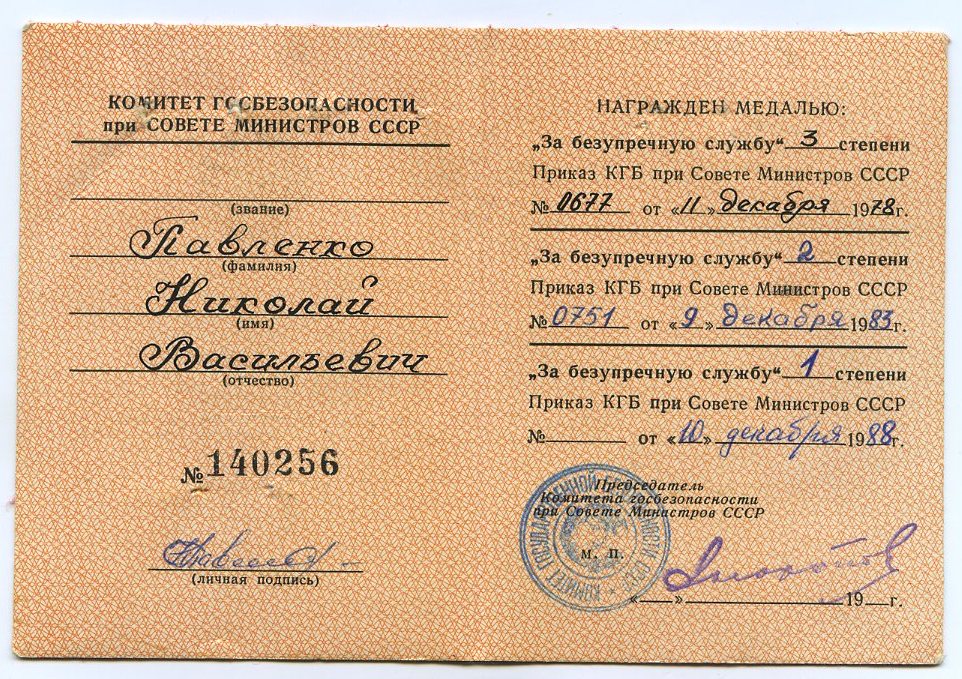 КОМИТЕТ ГОСБЕЗОПАСНОСТИ
при СОВЕТЕ МИНИСТРОВ СССР
(звание)
Павленко
(фамилия)
Николай
(имя)
Васильевич
(отчество)
№ 140256
(личная подпись)
НАГРАЖДЕН МЕДАЛЬЮ:
„За безупречную службу“ 3 степени
Приказ КГБ при Совете Министров СССР
№ 0677 от «11» декабря 1978г.
„За безупречную службу“ 2 степени
Приказ КГБ при Совете Министров СССР
№ 0751 от «9» декабря 1983г.
„За безупречную службу“ 1 степени
Приказ КГБ при Совете Министров СССР
№ от «10» декабря 1988г.
Председатель
Комитета госбезопасности
при Совете Министров СССР
М. П.
« » 19 г.